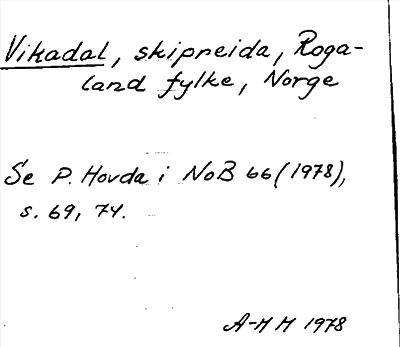 Vikadal, skipreida, Roga-
land fylke, Norge
Se P. Hovda i NoB 66 (1978),
s. 69, 74.
A-M H 1978